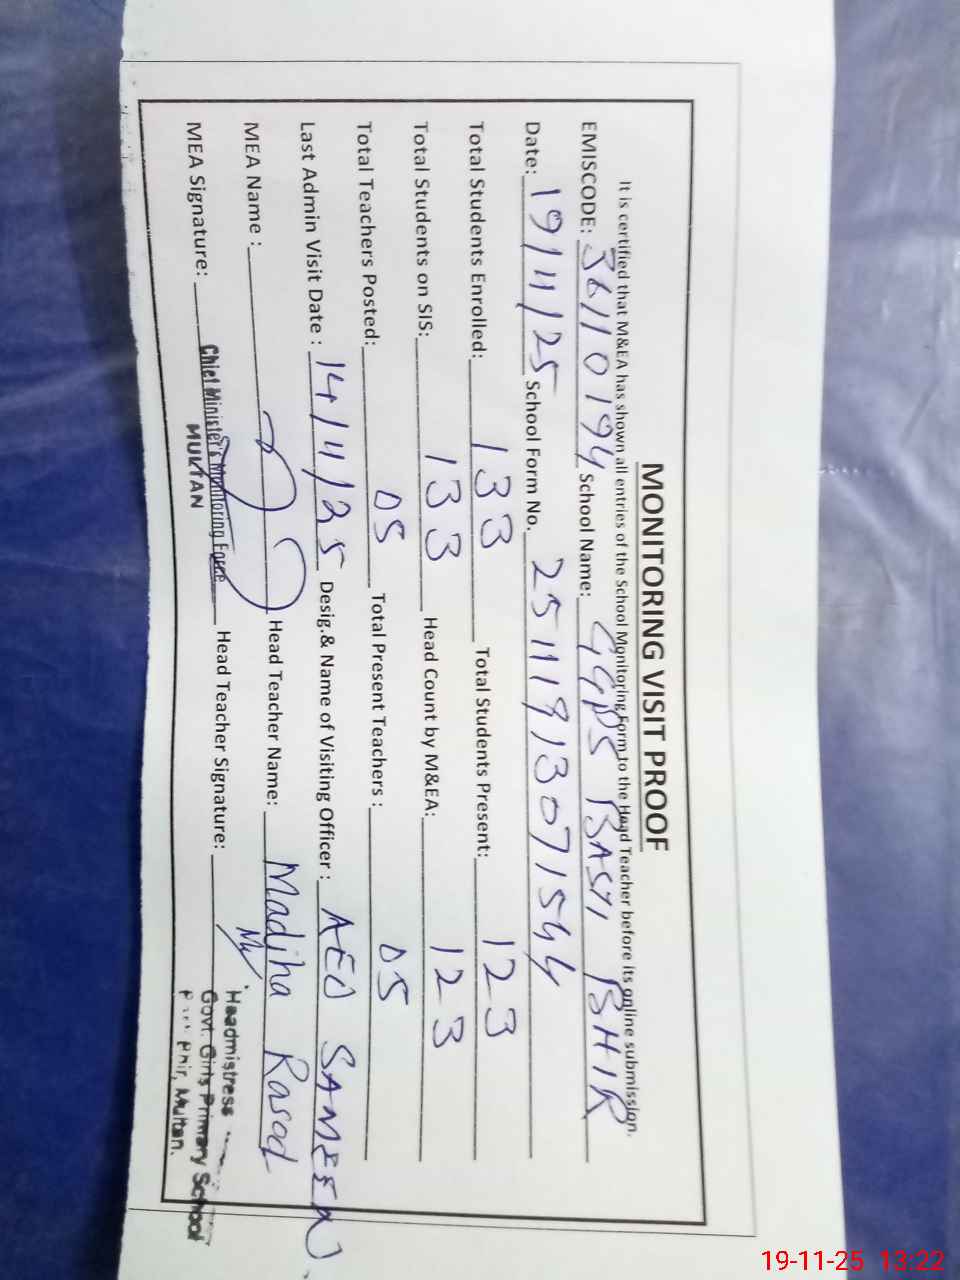 MONITORING VISIT PROOF
It is certified that M&EA has shown all entries of the School Monitoring Form to the Head Teacher before its online submission.
EMISCODE: 36110194 School Name: GGPS BASTI BHIR
Date: 19/11/25 School Form No. 25111913071544
Total Students Enrolled: 133 Total Students Present: 123
Total Students on SIS: 133 Head Count by M&EA: 123
Total Teachers Posted: 05 Total Present Teachers : 05
Last Admin Visit Date : 14/11/25 Desig.& Name of Visiting Officer : AEO SAMEEN
MEA Name : Head Teacher Name: Madiha Rasod
MEA Signature: Chief Minister's Monitoring Force Head Teacher Signature:
MULTAN
Headmistress
Govt. Girls Primary School
Bhir, Multan.
19-11-25 13:22